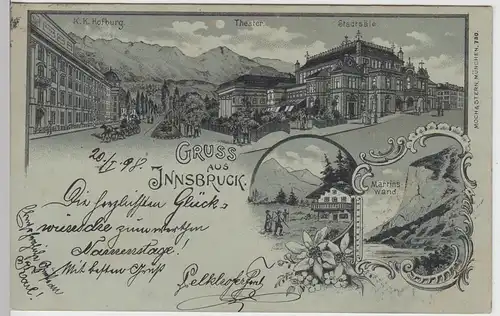 K. K. Hofburg.
Theater
Stadtsäle
GRUSS
AUS
INNSBRUCK.
Martins
wand.
MOCH & STERN, MÜNCHEN, 780.
20/I 98.
Die herzlichsten Glück-
wünsche zum werthen
Namenstage!
Mit besten Gruß